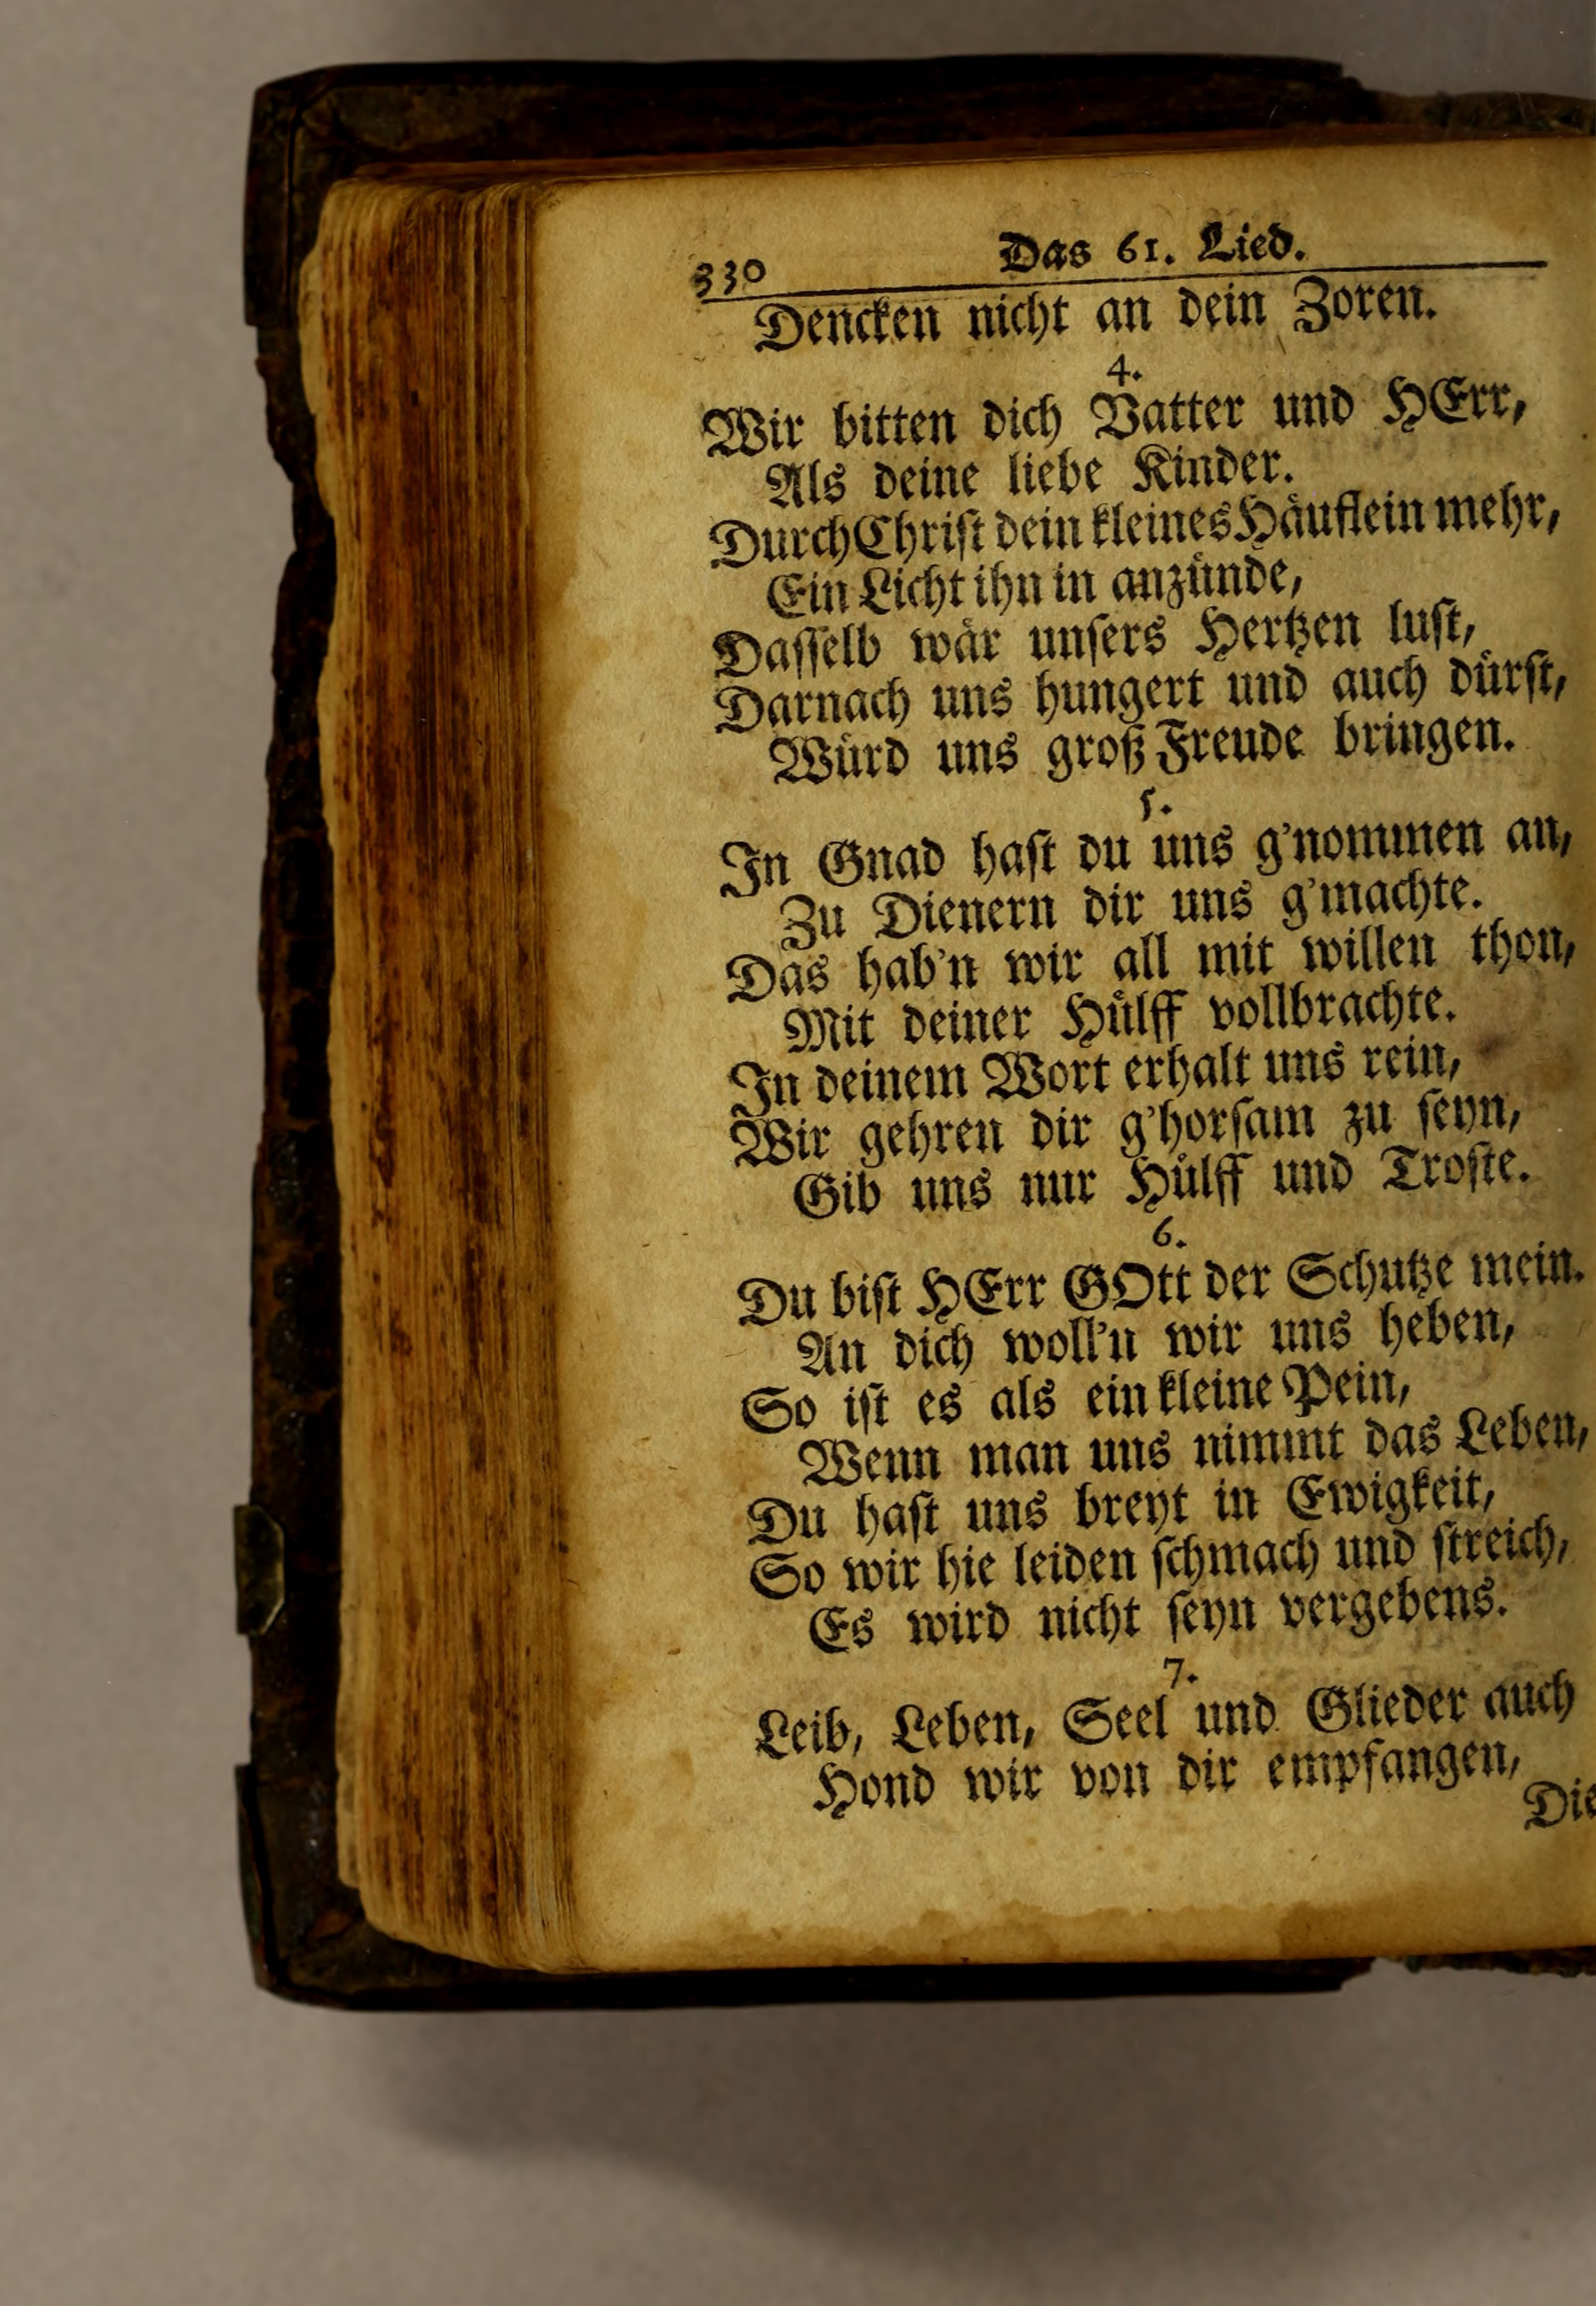 330
Das 61. Lied.
Dencken nicht an dein Zoren.
4.
Wir bitten dich Vatter und HErr,
Als deine liebe Kinder.
Durch Christ dein kleines Häuflein mehr,
Ein Licht ihn in anzünde,
Dasselb wär unsers Hertzen lust,
Darnach uns hungert und auch dürst,
Würd uns groß Freude bringen.
5.
In Gnad hast du uns g'nommen an,
Zu Dienern dir uns g'machte.
Das hab'n wir all mit willen thon,
Mit deiner Hülff vollbrachte.
In deinem Wort erhalt uns rein,
Wir gehren dir g'horsam zu seyn,
Gib uns nur Hülff und Troste.
6.
Du bist HErr GOtt der Schutze mein.
An dich woll'n wir uns heben,
So ist es als ein kleine Pein,
Wenn man uns nimmt das Leben,
Du hast uns breyt in Ewigkeit,
So wir hie leiden schmach und streich,
Es wird nicht seyn vergebens.
7.
Leib, Leben, Seel und Glieder auch
Hond wir von dir empfangen,
Die